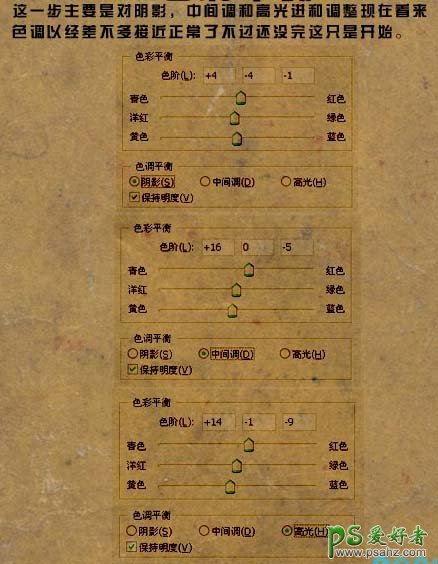 这一步主要是对阴影，中间调和高光进和调整现在看来
色调以经差不多接近正常了不过还没完这只是开始。
色彩平衡
色阶(L): +4 -4 -1
青色 红色
洋红 绿色
黄色 蓝色
色调平衡
阴影(S) 中间调(D) 高光(H)
保持明度(V)
色彩平衡
色阶(L): +16 0 -5
青色 红色
洋红 绿色
黄色 蓝色
色调平衡
阴影(S) 中间调(D) 高光(H)
保持明度(V)
色彩平衡
色阶(L): +14 -1 -9
青色 红色
洋红 绿色
黄色 蓝色
色调平衡
阴影(S) 中间调(D) 高光(H)
保持明度(V)
PS爱好者
www.psahz.com